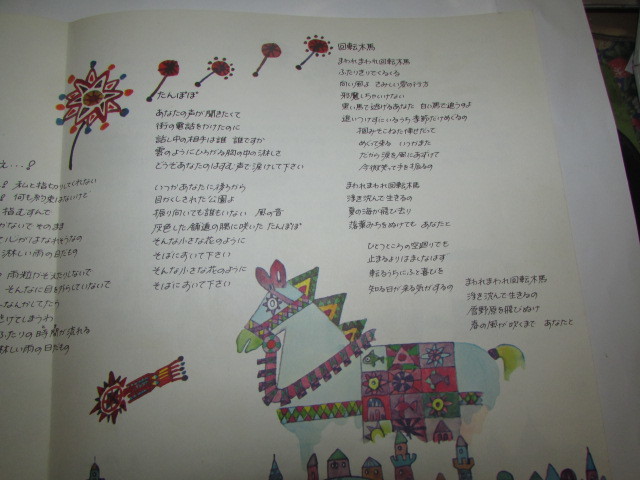 え…♪
私と指きりしてくれない
何も約束はないけど
指むすんで
かないで そのまま
淋しい雨の日だもの
雨粒がそえりないで
そんなに目をそらしていないで
なんかしてたら
ふたりの時間が流れる
淋しい雨の日だもの
たんぽぽ
あなたの声が聞きたくて
街の電話をかけたのに
話し中の相手は誰 誰ですか
雲のようにひろがる胸の中の淋しさ
どうぞあなたのはずむ声で 湧けて下さい
いつかあなたに待ちから
目かくしされた公園よ
振り向いても誰もいない 風の音
灰色した舗道の隅に咲いた たんぽぽ
そんな小さな花のように
そばにおいて下さい
そんな小さな花のように
そばにおいて下さい
回転木馬
まわれまわれ回転木馬
ふたりきりでくるくる
向い風よ さみしい愛の行方
邪魔しちゃいけない
黒い馬で逃げるあなた 白い馬で追うのよ
追いつけずにいるうち季節だけめぐるの
掴みそこねた倖せだって
めぐって来る いつかまた
だから涙を風にあずけて
今微笑って手を振るの
まわれまわれ回転木馬
浮き沈んで生きるの
夏の海が飛び去り
落葉みちをぬけても あなたと
ひとつところの空廻りでも
止まるよりはましなはず
転るうちにふと喜びを
知る日が来る気がするの
まわれまわれ回転木馬
浮き沈んで生きるの
雪野原を飛びぬけ
春の風が吹くまで あなたと